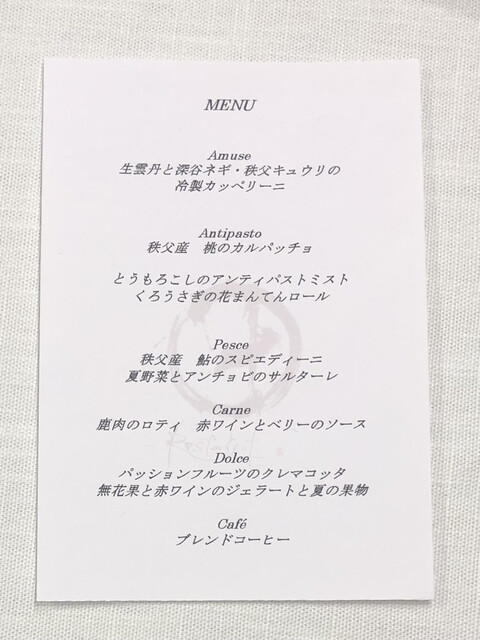 MENU
Amuse
生雲丹と深谷ネギ・秩父キュウリの
冷製カッペリーニ
Antipasto
秩父産 桃のカルパッチョ
とうもろこしのアンティパストミスト
くろうさぎの花まんてんロール
Pesce
秩父産 鮎のスピエディーニ
夏野菜とアンチョビのサルターレ
Carne
鹿肉のロティ 赤ワインとベリーのソース
Dolce
パッションフルーツのクレマコッタ
無花果と赤ワインのジェラートと夏の果物
Café
ブレンドコーヒー